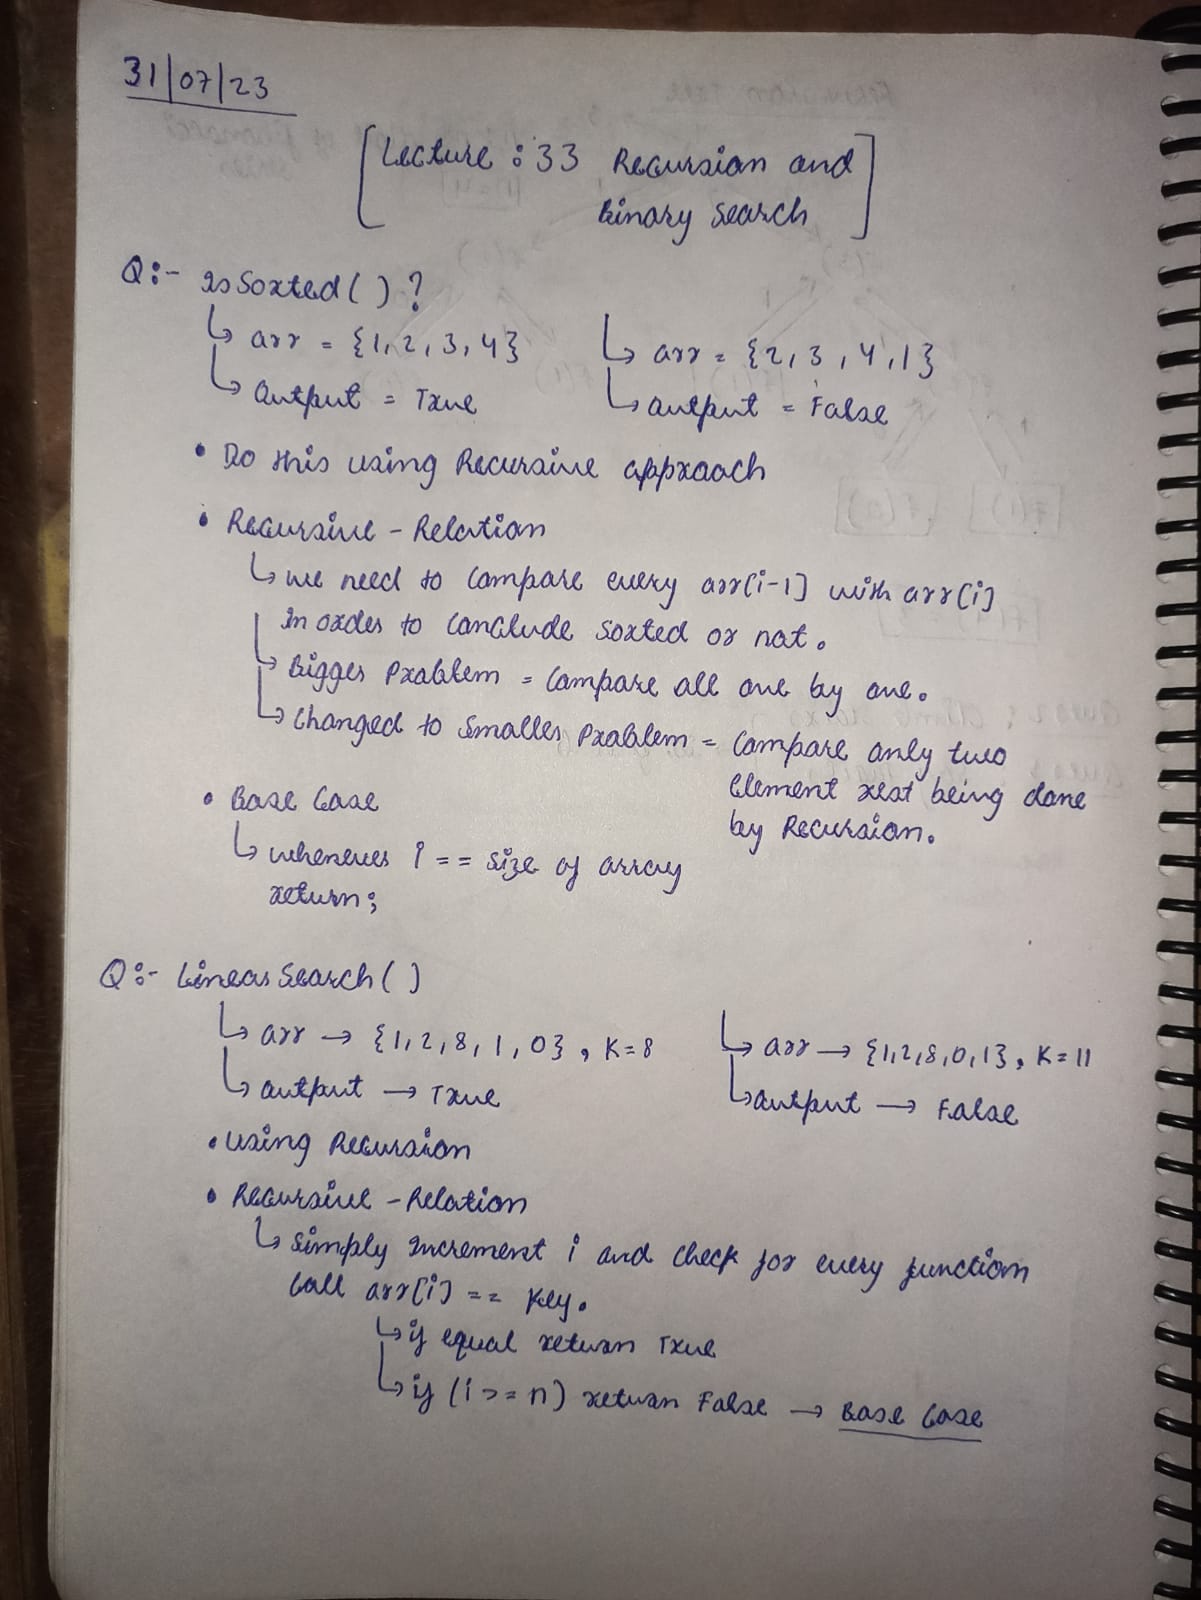 31/07/23
[Lecture : 33 Recursion and
Binary Search]
Q:- IsSorted( ) ?
↳ arr = {1, 2, 3, 4}
↳ Output = True
↳ arr = {2, 3, 4, 1}
↳ Output = False
• Do this using Recursive approach
• Recursive - Relation
↳ we need to compare every arr[i-1] with arr[i]
In order to conclude sorted or not.
↳ Bigger Problem = Compare all one by one.
↳ Changed to Smaller Problem = Compare only two
element rest being done
by Recursion.
• Base Case
↳ whenever i == size of array
return;
Q:- Linear Search( )
↳ arr → {1, 2, 8, 1, 0}, K=8
↳ output → True
↳ arr → {1,2,8,0,1}, K=11
↳ output → False
• Using Recursion
• Recursive - Relation
↳ Simply Increment i and check for every function
call arr[i] == Key.
↳ if equal return True
↳ if (i >= n) return False → Base Case